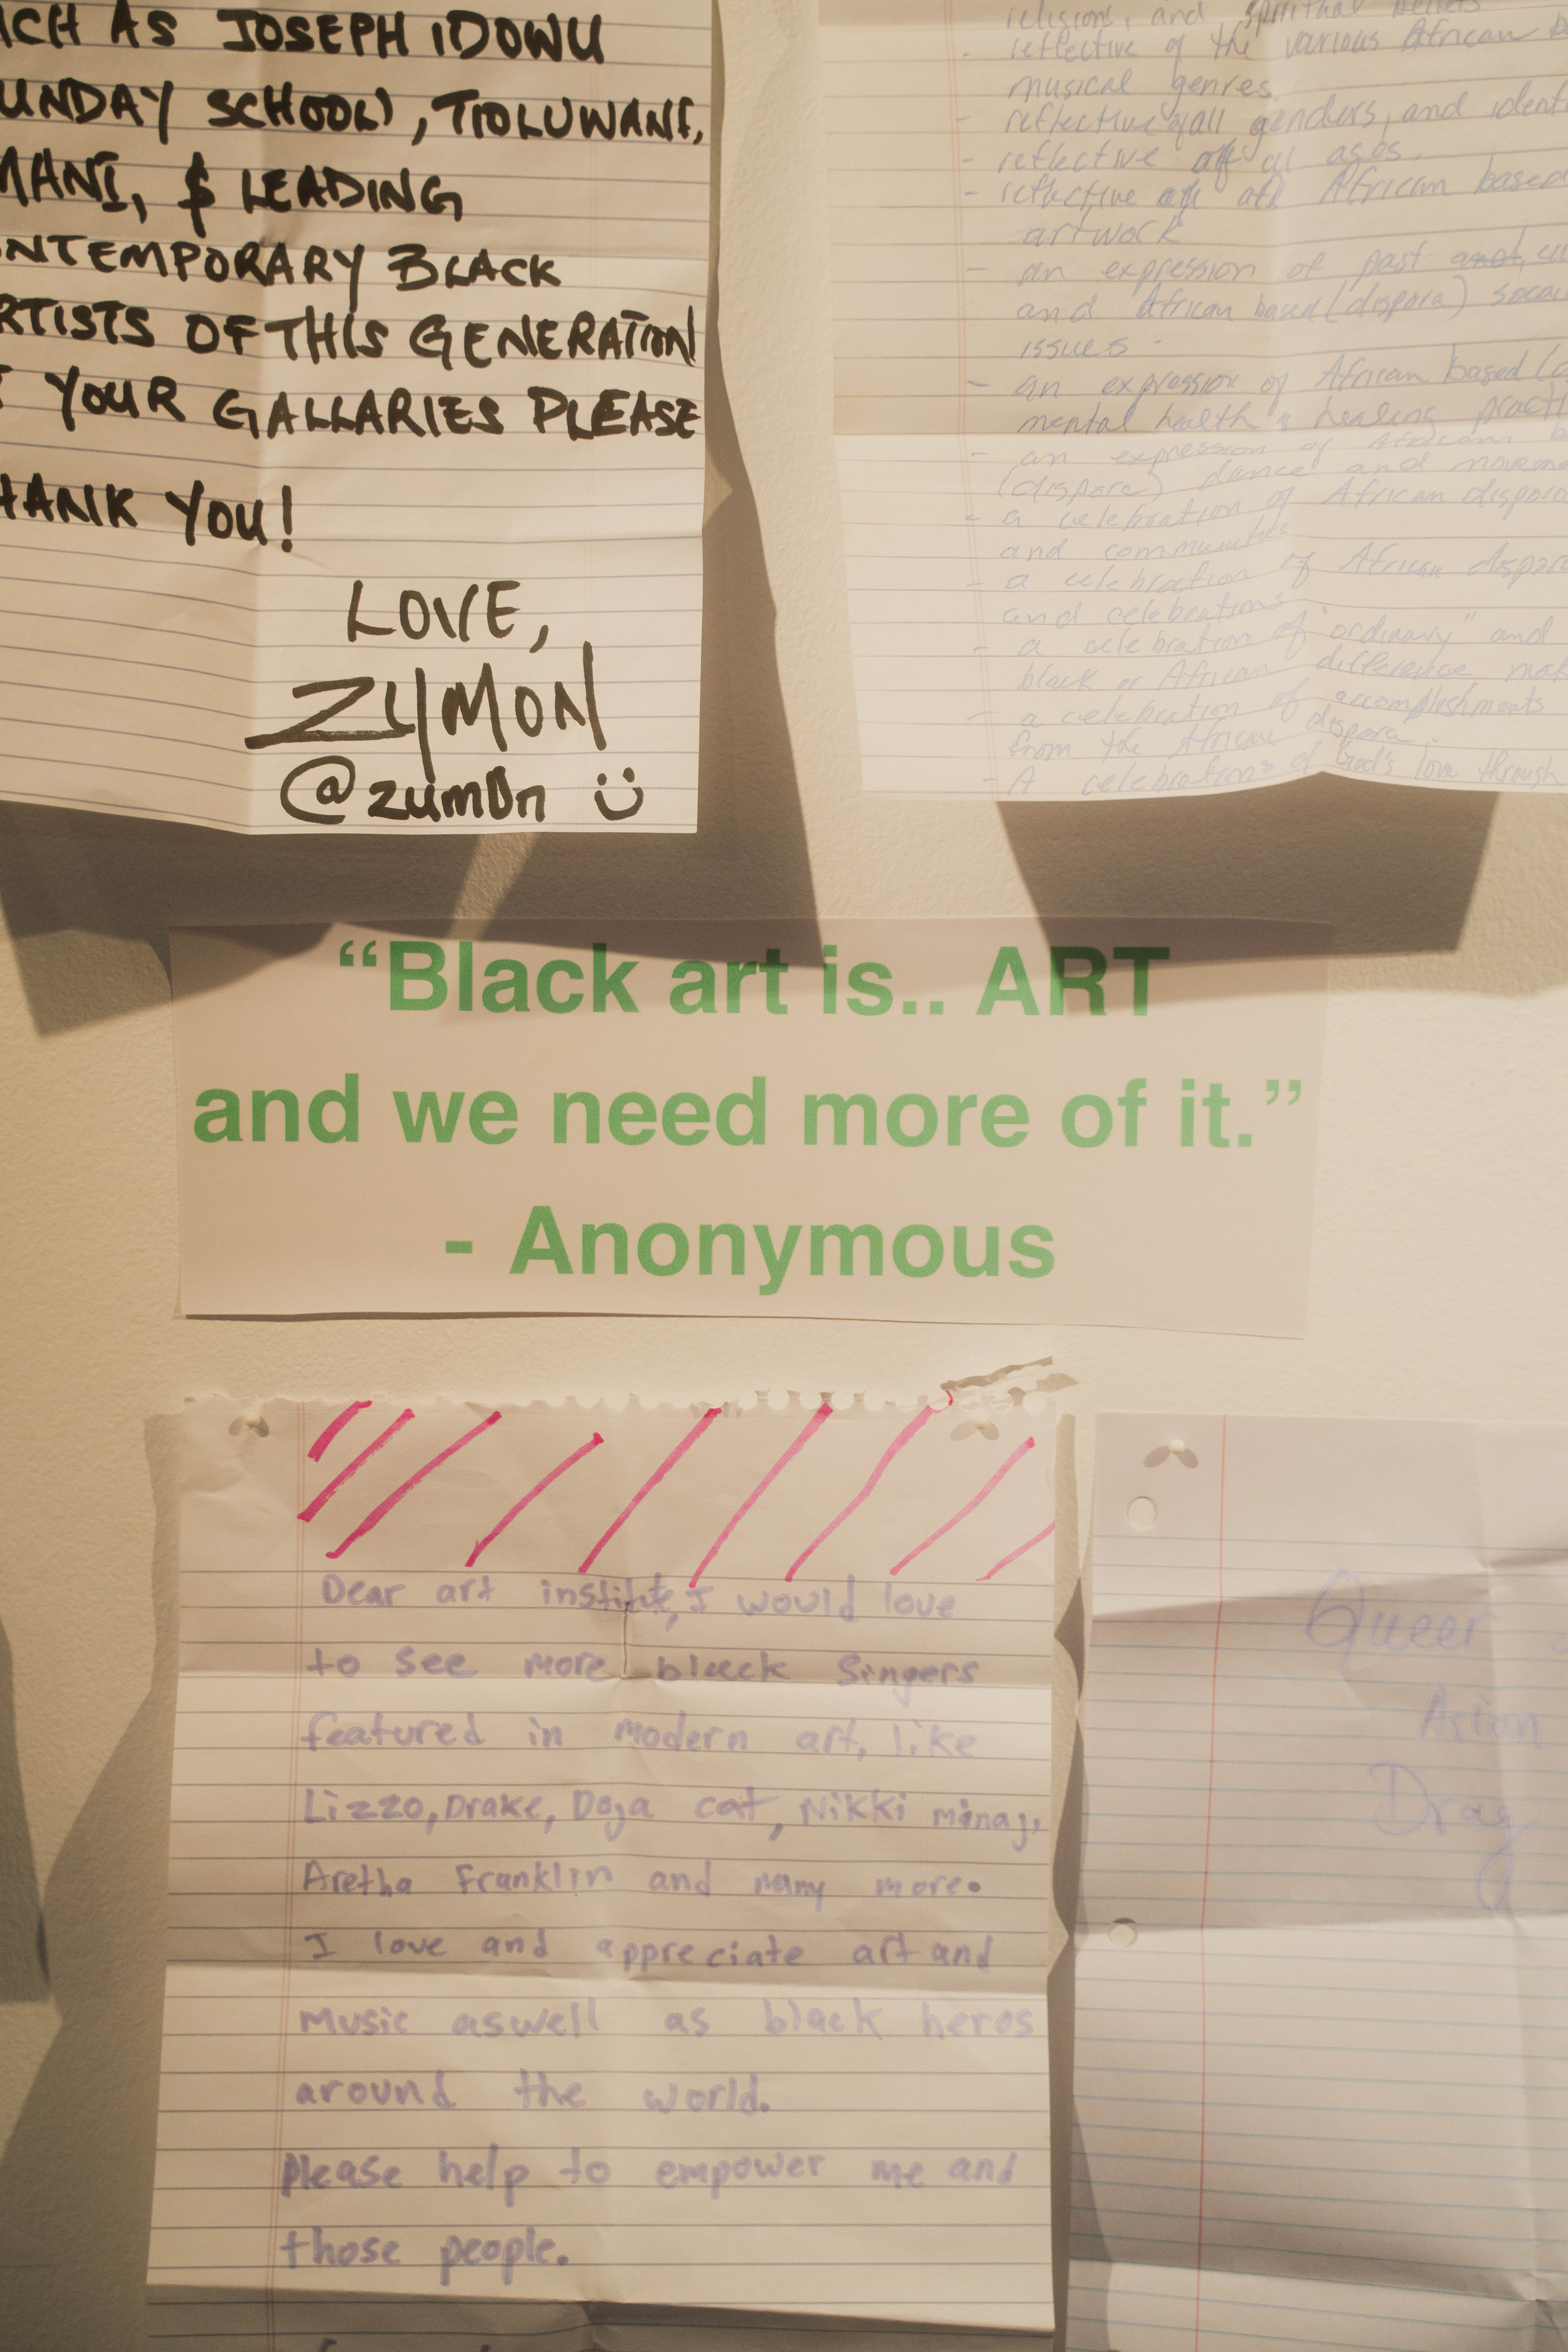 ACH AS JOSEPH IDOWU
UNDAY SCHOOL), TIOLUWANI,
MANI, $ LEADING
ONTEMPORARY BLACK
RTISTS OF THIS GENERATION
YOUR GALLARIES PLEASE
HANK YOU!
LOVE,
ZYMON
@zumOn
religions, and spiritual beliefs
- reflective of the various African
musical genres.
- reflective of all genders, and
- reflective of all ages.
- reflective of all African based
artwork
- an expression of past and,
and African based (dispora)
issues.
- an expression of African based
mental health & healing
- an expression of African
(dispora) dance and
- a celebration of African dispora
and communities
- a celebration of African dispora
and celebrations
- a celebration of "ordinary" and
black or African difference
- a celebration of accomplishments
from the African dispora.
- A celebrations of God's love through
“Black art is.. ART
and we need more of it.”
- Anonymous
Dear art institute, I would love
to see more black Singers
featured in modern art, like
Lizzo, Drake, Doja cat, Nikki minaj,
Aretha Franklin and many more.
I love and appreciate art and
music aswell as black heros
around the world.
please help to empower me and
those people.
Queer
Asian
Drag